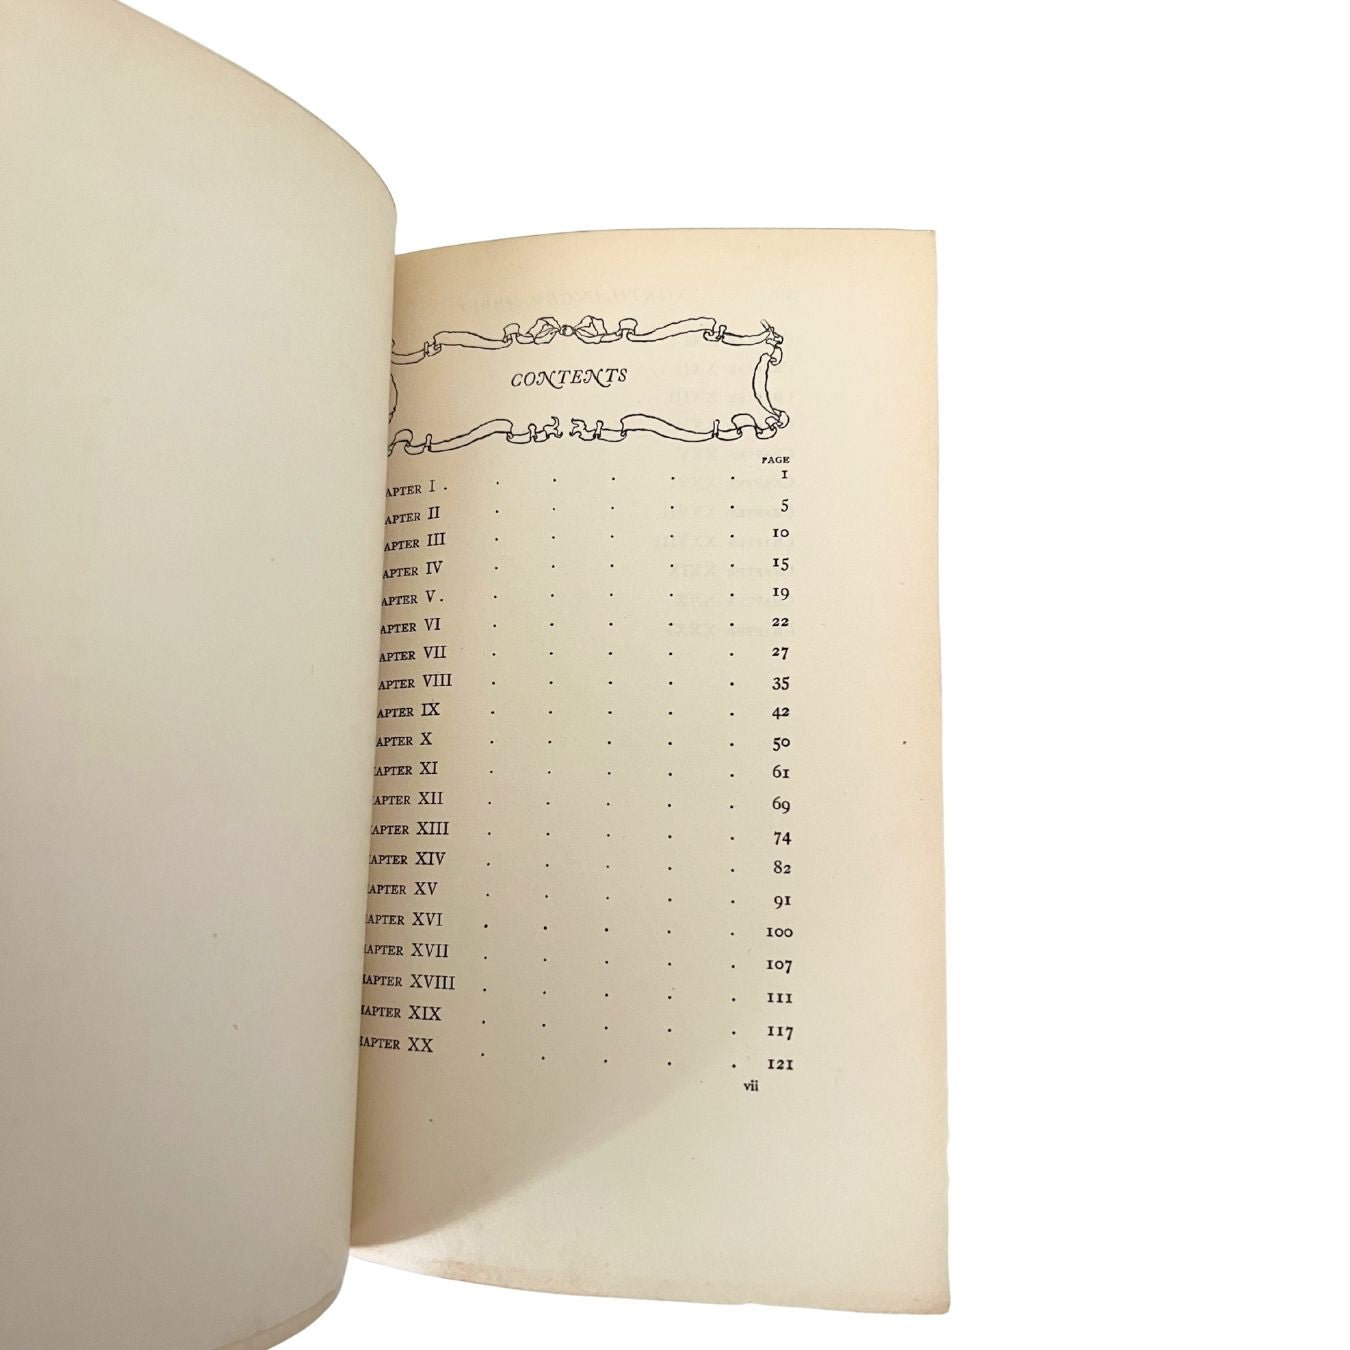 CONTENTS
PAGE
APTER I . . . . . . 1
APTER II . . . . . 5
APTER III . . . . . 10
APTER IV . . . . . 15
APTER V . . . . . . 19
APTER VI . . . . . 22
APTER VII . . . . . 27
APTER VIII . . . . . 35
APTER IX . . . . . 42
APTER X . . . . . 50
APTER XI . . . . . 61
APTER XII . . . . . 69
APTER XIII . . . . . 74
APTER XIV . . . . . 82
APTER XV . . . . . 91
APTER XVI . . . . . 100
APTER XVII . . . . . 107
HAPTER XVIII . . . . . 111
HAPTER XIX . . . . . 117
HAPTER XX . . . . . 121
vii